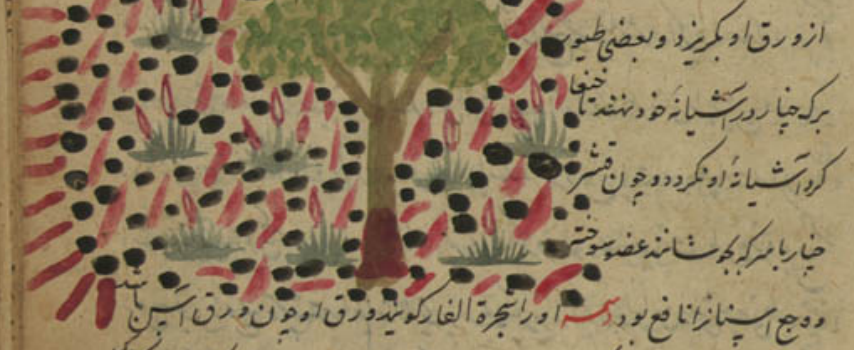 از ورق او بگریزد و بعضی طیور
برک چنار در آشیانهٔ خود نهند تا خنفسا
کرد آشیانهٔ او نکردد و چون قشر
چنار با سرکه بجوشانند عضو سوخته
و وجع اسنان را نافع بود دسمه او را شجرة الفار کویند ورق او چون ورق آس باشد